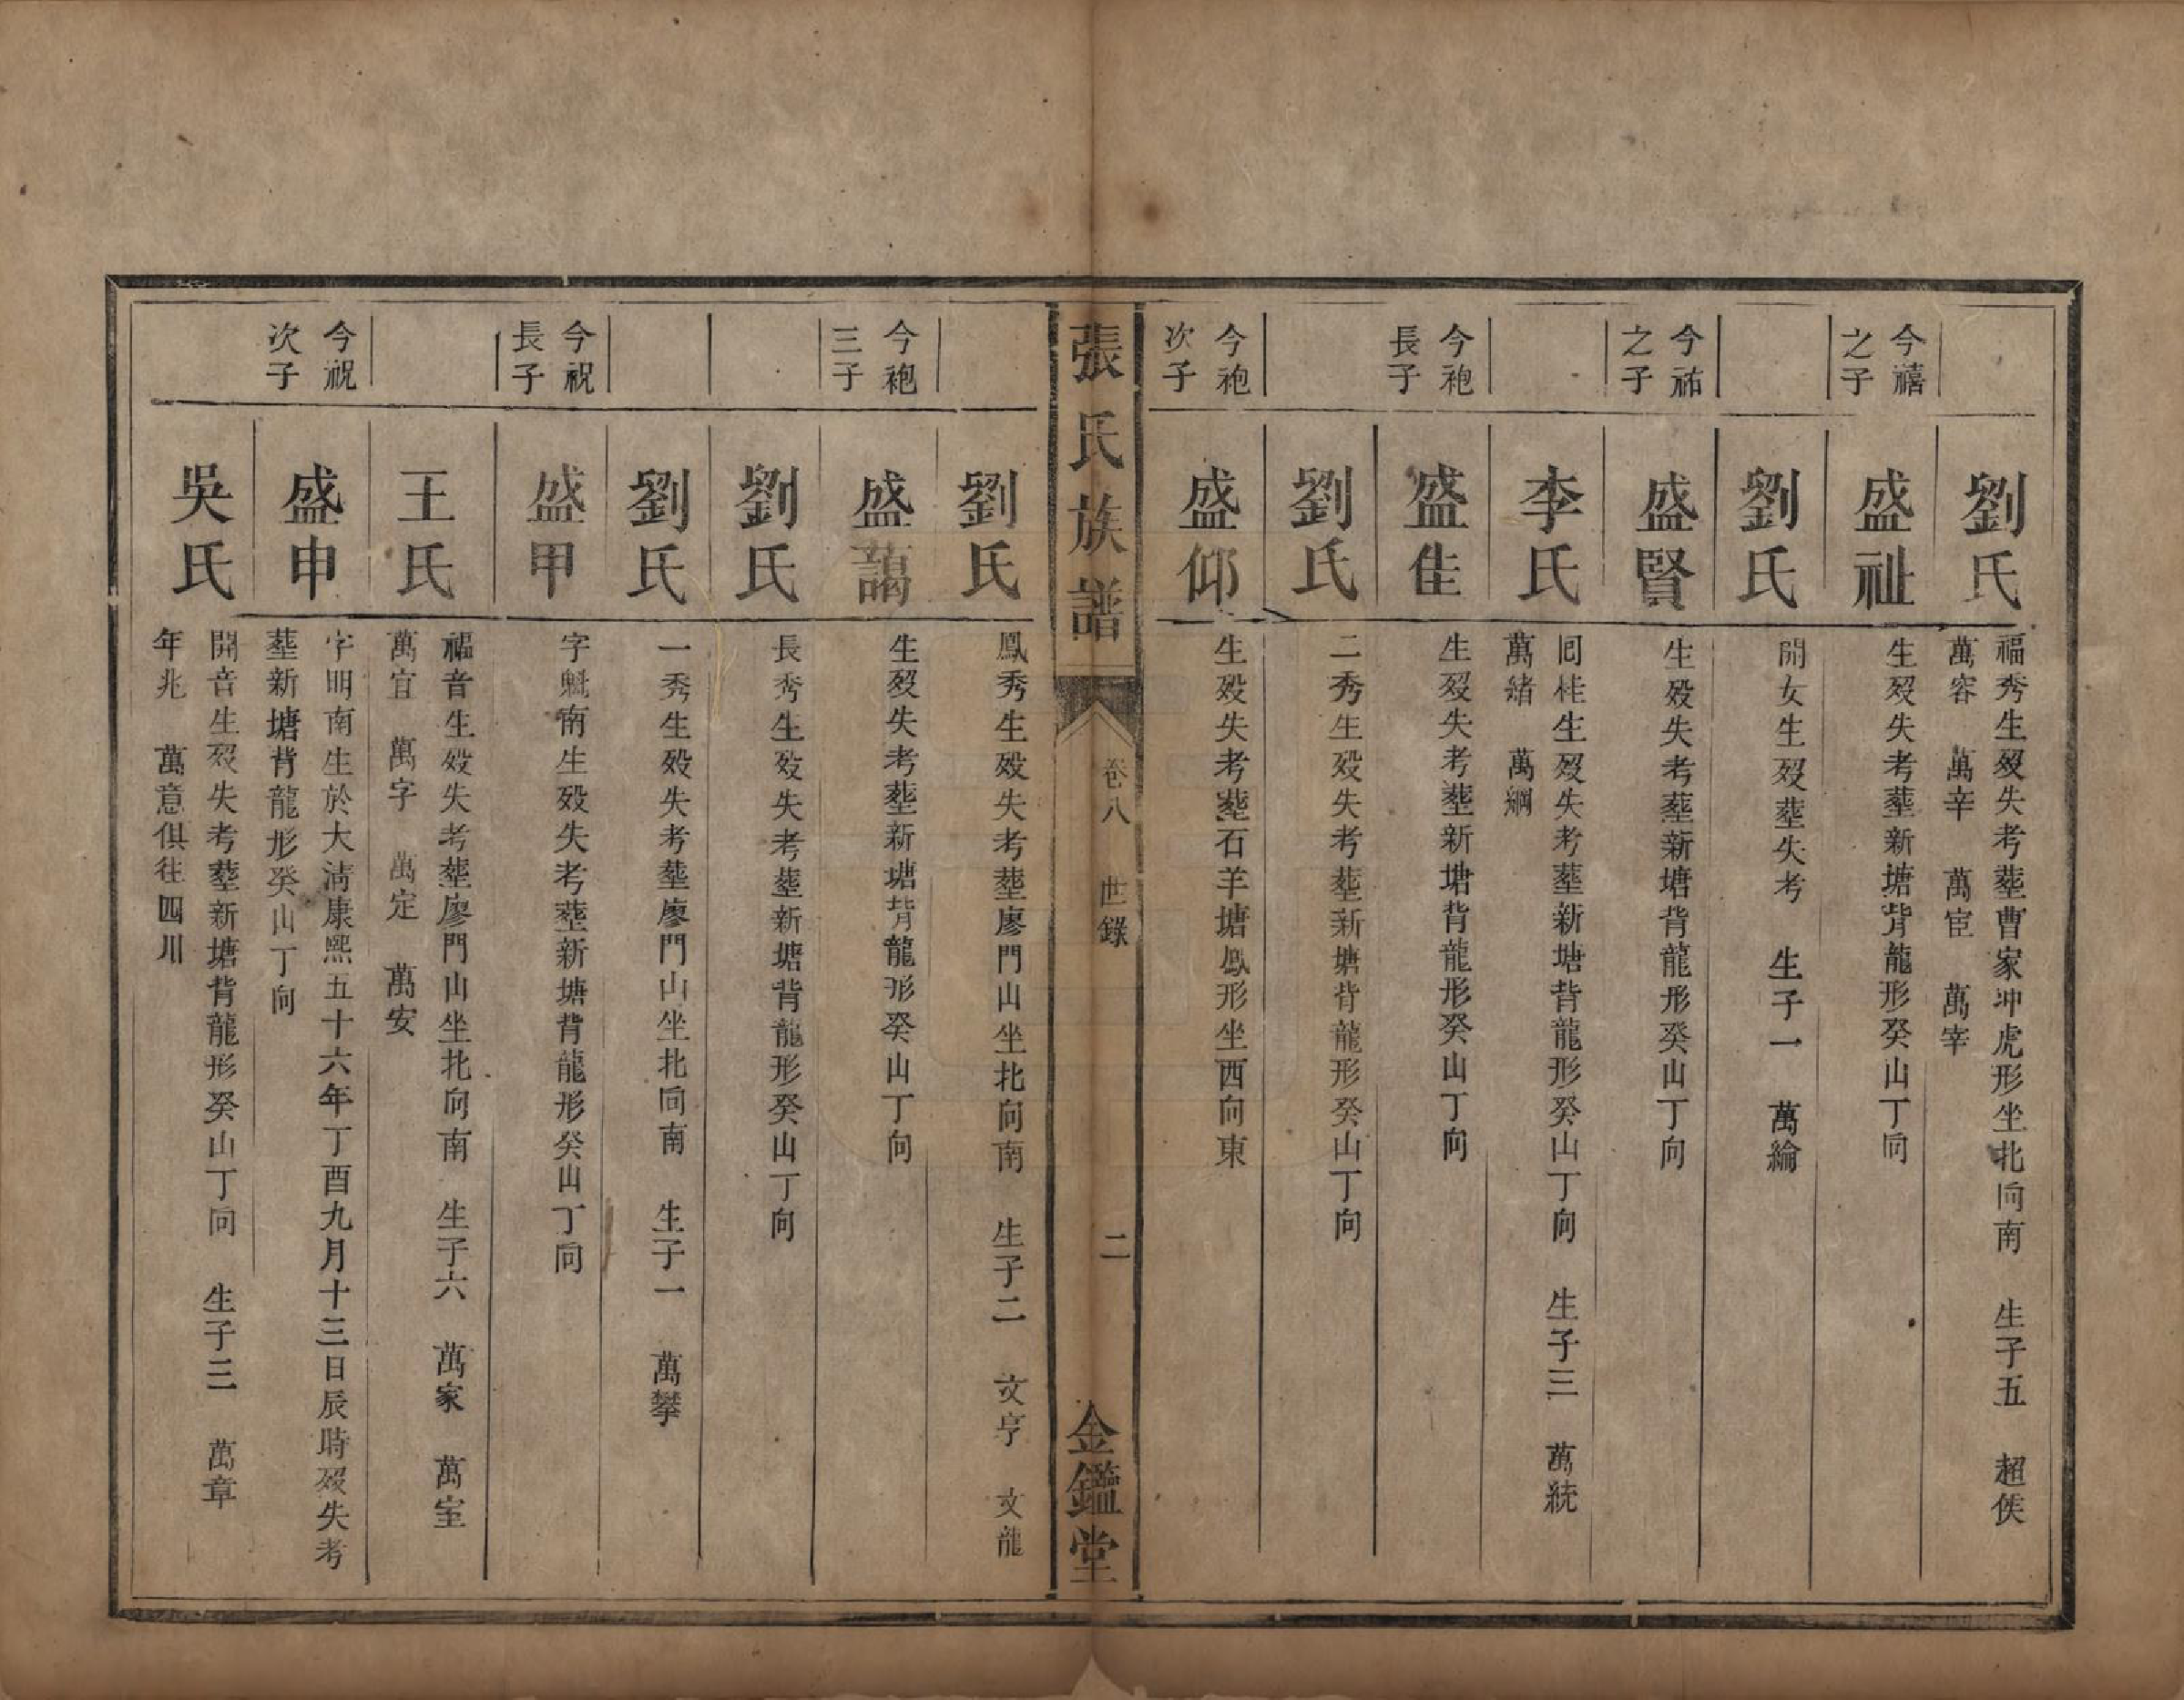 劉氏
福秀生歿失考塟曹家冲虎形坐北向南　生子五　超俟
萬容　萬辛　萬宦　萬宰
今禧
之子
盛祉
生歿失考塟新塘背龍形癸山丁向
劉氏
開女生歿塟失考　生子一　萬綸
今祐
之子
盛賢
生歿失考塟新塘背龍形癸山丁向
李氏
囘桂生歿失考塟新塘背龍形癸山丁向　生子三　萬統
萬緒　萬綱
今袍
長子
盛佳
生歿失考塟新塘背龍形癸山丁向
劉氏
二秀生歿失考塟新塘背龍形癸山丁向
今袍
次子
盛仰
生歿失考塟石羊塘鳳形坐西向東
張氏族譜
卷八　世錄
二
金鑑堂
劉氏
鳳秀生歿失考塟廖門山坐北向南　生子二　文亨　文龍
今袍
三子
盛藹
生歿失考塟新塘背龍形癸山丁向
劉氏
長秀生歿失考塟新塘背龍形癸山丁向
劉氏
一秀生歿失考塟廖門山坐北向南　生子一　萬攀
今祝
長子
盛甲
字魁南生歿失考塟新塘背龍形癸山丁向
王氏
福音生歿失考塟廖門山坐北向南　生子六　萬家　萬室
萬宜　萬字　萬定　萬安
今祝
次子
盛申
字明南生於大清康熙五十六年丁酉九月十三日辰時歿失考
塟新塘背龍形癸山丁向
吳氏
開音生歿失考塟新塘背龍形癸山丁向　生子三　萬章
年兆　萬意俱往四川